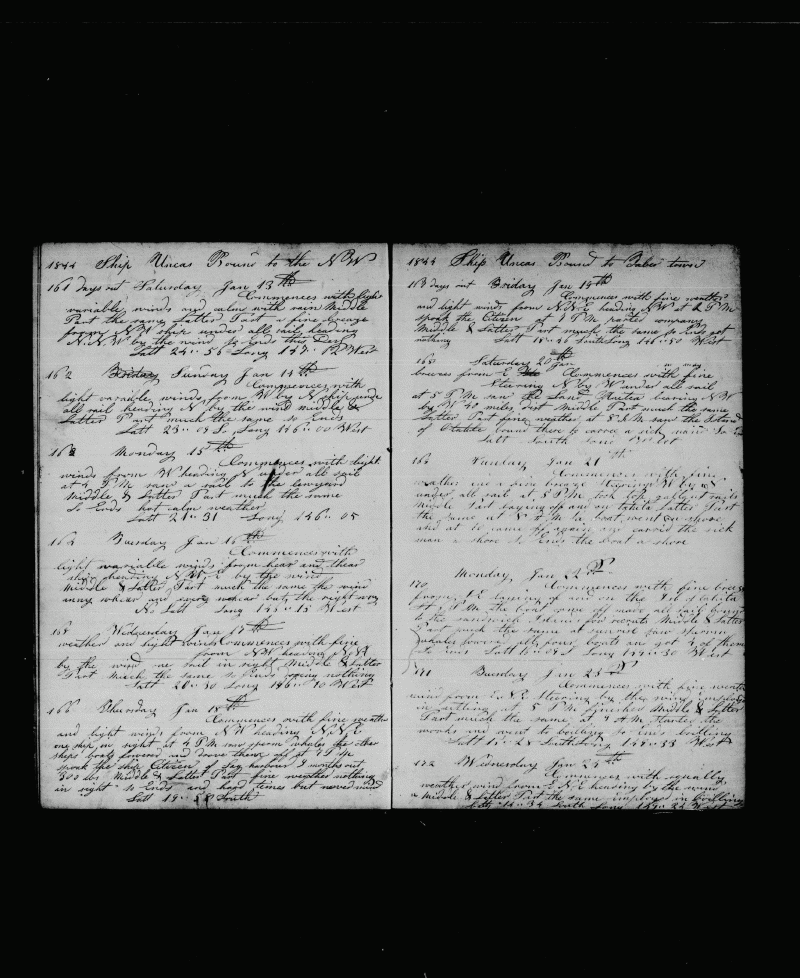 1844 Ship Uncas Bound to the N W
161 Days out Saturday Jan 13th
Commences with light
variable winds and calm with rain Middle
Part the same Latter Part a fine breeze
from N W ship under all sail heading
N.N.W by the wind So Ends this Day
Latt 24 " 56 Long 147 " 12 West
162 Sunday Jan 14th
Commences with
light varable winds from W by N ship unde
all sail heading N by the wind middle &
Latter Part much the same so Ends
Latt 23 " 09 S Long 146 " 00 West
Monday 15th
Commences with light
winds from W heading N under all sail
at 4 P M saw a sail to the leeward
Middle & Latter Part much the same
So Ends hot calm weather
Latt 21 " 31 Long 146 " 05
Tuesday Jan 16th
Commences with
light variable winds from hear and thear
ship heading N W E by the wind
Middle & Latter Part much the same the wind
anny whear and every whear but the right way
No Latt Long 145 " 15 West
Wednesday Jan 17th
weather and light winds Commences with fine
from N W heading N N E
by the wind one sail in sight Middle & Latter
Part much the same so Ends seeing nothing
Latt 20 " 30 Long 146 " 10 West
Thursday Jan 18th
Commences with fine weathe
and light winds from N W heading N.N.E
one ship in sight at 4 P M saw sperm whales the other
ships boats lowered and drove them off at 7 P M
speak the ship Citizen of Sag harbour 8 months out
300 bbs Middle & Latter Part fine weather nothing
in sight so Ends and hard times but never mind
Latt 19 " 58 South
1844 Ship Uncas Bound to Taber town
Days out Friday Jan 19th
Commences with fine weather
and light winds from N.N.E heading N W at 2 P M
spoke the Citizen at 8 P M parted company
Middle & Latter Part much the same so Ends got
nothing Latt 18 " 46 South Long 146 " 50 West
Saturday 20th Jan
Commences with fine
breezes from E
steering N by W under all sail
at 5 P M saw the Land bearing N W
by W 40 miles dist Middle Part much the same
Latter Part fine weather at 5 A M saw the Island
of bound there to leave a sick man So E
Latt South Long
Sunday Jan 21st
Commences with fine
weather and a fine breeze steering W by N
under all sail at 8 P M took in gallant sails
Middle Part laying off and on Latter Part
the same at 8 A M the boat went on shore
and at 10 came off again and carried the sick
man a shore So Ends the boat a shore
170 Monday Jan 22nd
Commences with fine breeze
from E laying off and on the
at P M the boat come off made all sail bound
to the sandwich Islands for recruits Middle & Latter
Part much the same at sunrise saw sperm
whales lowered all four boats and got 4 of them
so Ends Latt 15 " 09 S Long 149 " 30 West
171 Tuesday Jan 23rd
Commences with fine weathe
wind from E N E steering by the wind employed
in cutting at 5 P M finished Middle & Latter
Part much the same at 4 A M started the
works and went to boiling so Ends boiling
Latt 15 " 28 South Long 149 " 33 West
172 Wednesday Jan 24th
Commences with squally
weather wind from E N E heading by the wind
Middle & Latter Part the same employed in boiling
Latt 14 " 34 South Long 149 " 22 West